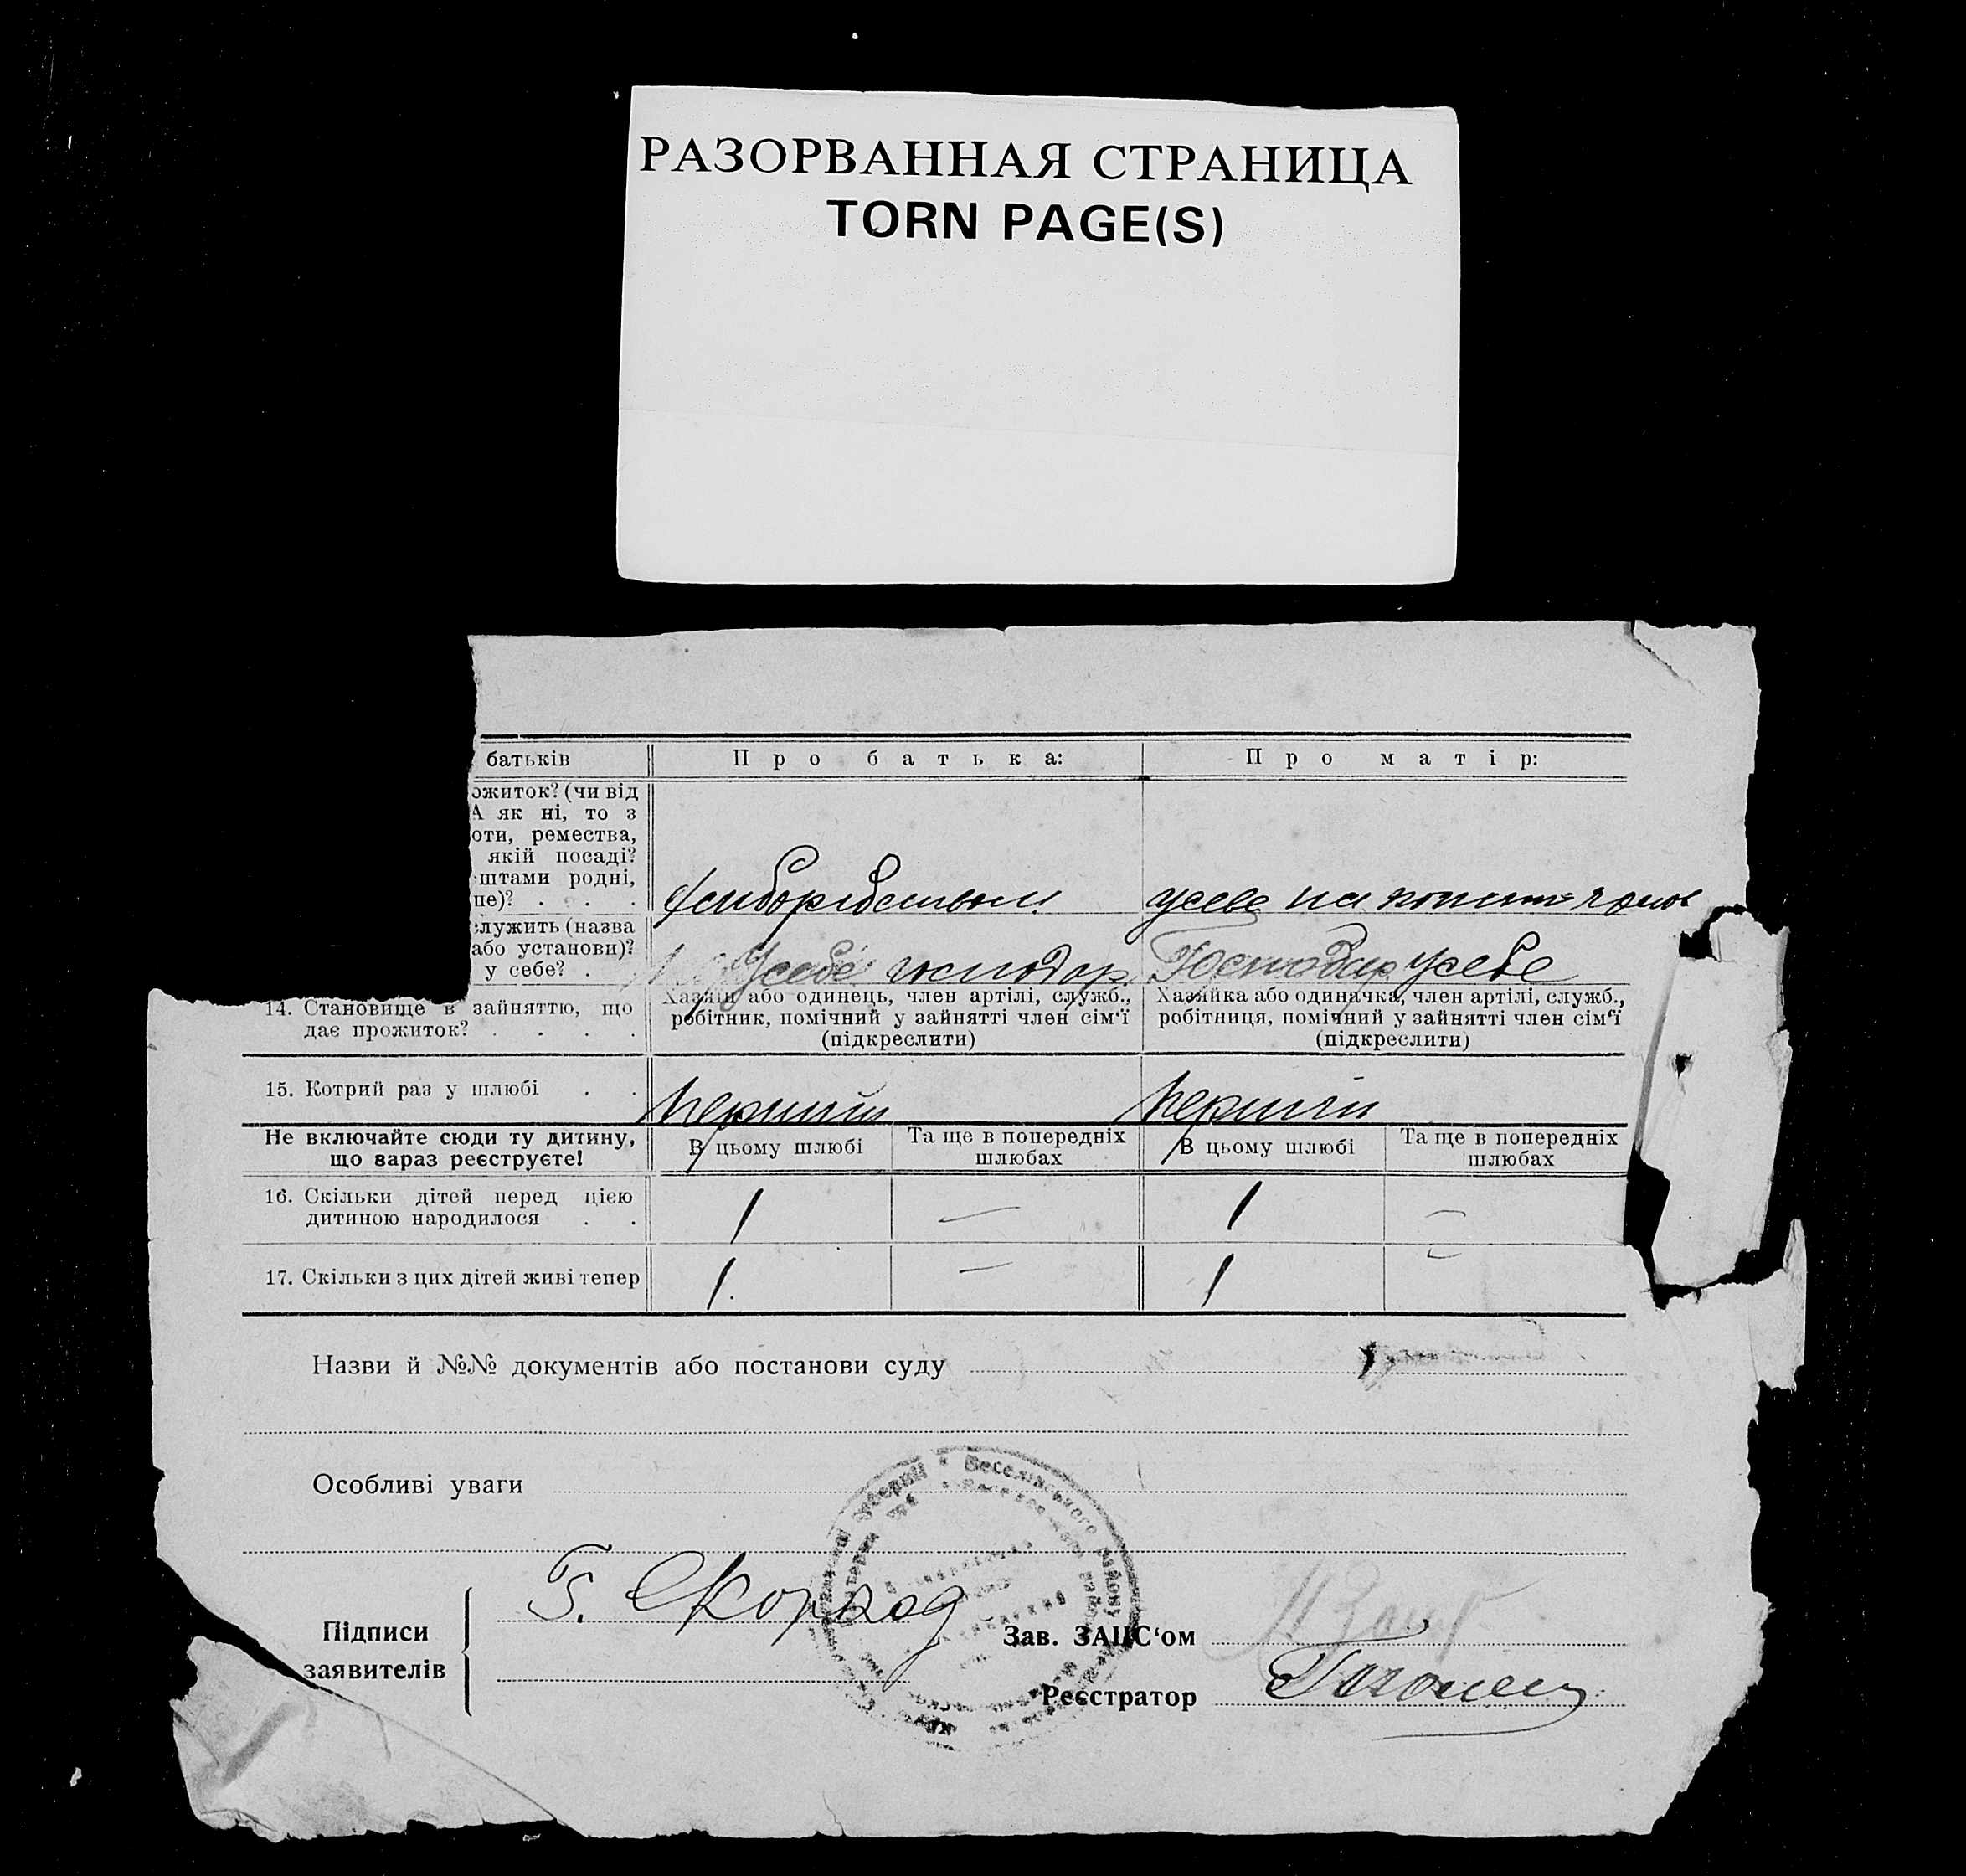 РАЗОРВАННАЯ СТРАНИЦА
TORN PAGE(S)
батьків
Про батька:
Про матір:
ожиток? (чи від
А як ні, то з
оти, ремества,
якій посаді?
штами родні,
ше)? . . .
служить (назва
або установи)?
у себе? .
усебе на
Усебе господар
Господар усебе
14. Становище в зайняттю, що
дає прожиток? . . . .
Хазяїн або одинець, член артілі, служб.,
робітник, помічний у зайнятті член сім'ї
(підкреслити)
Хазяйка або одиначка, член артілі, служб.,
робітниця, помічний у зайнятті член сім'ї
(підкреслити)
15. Котрий раз у шлюбі . .
перший
перший
Не включайте сюди ту дитину,
що зараз реєструєте!
В цьому шлюбі
Та ще в попередніх
шлюбах
В цьому шлюбі
Та ще в попередніх
шлюбах
16. Скільки дітей перед цією
дитиною народилося . .
1 — 1 —
17. Скільки з цих дітей живі тепер
1. — 1 —
Назви й №№ документів або постанови суду
Особливі уваги
Веселинівського району
Підписи
заявителів
Г. Скорход
Зав. ЗАЦС'ом
Реєстратор